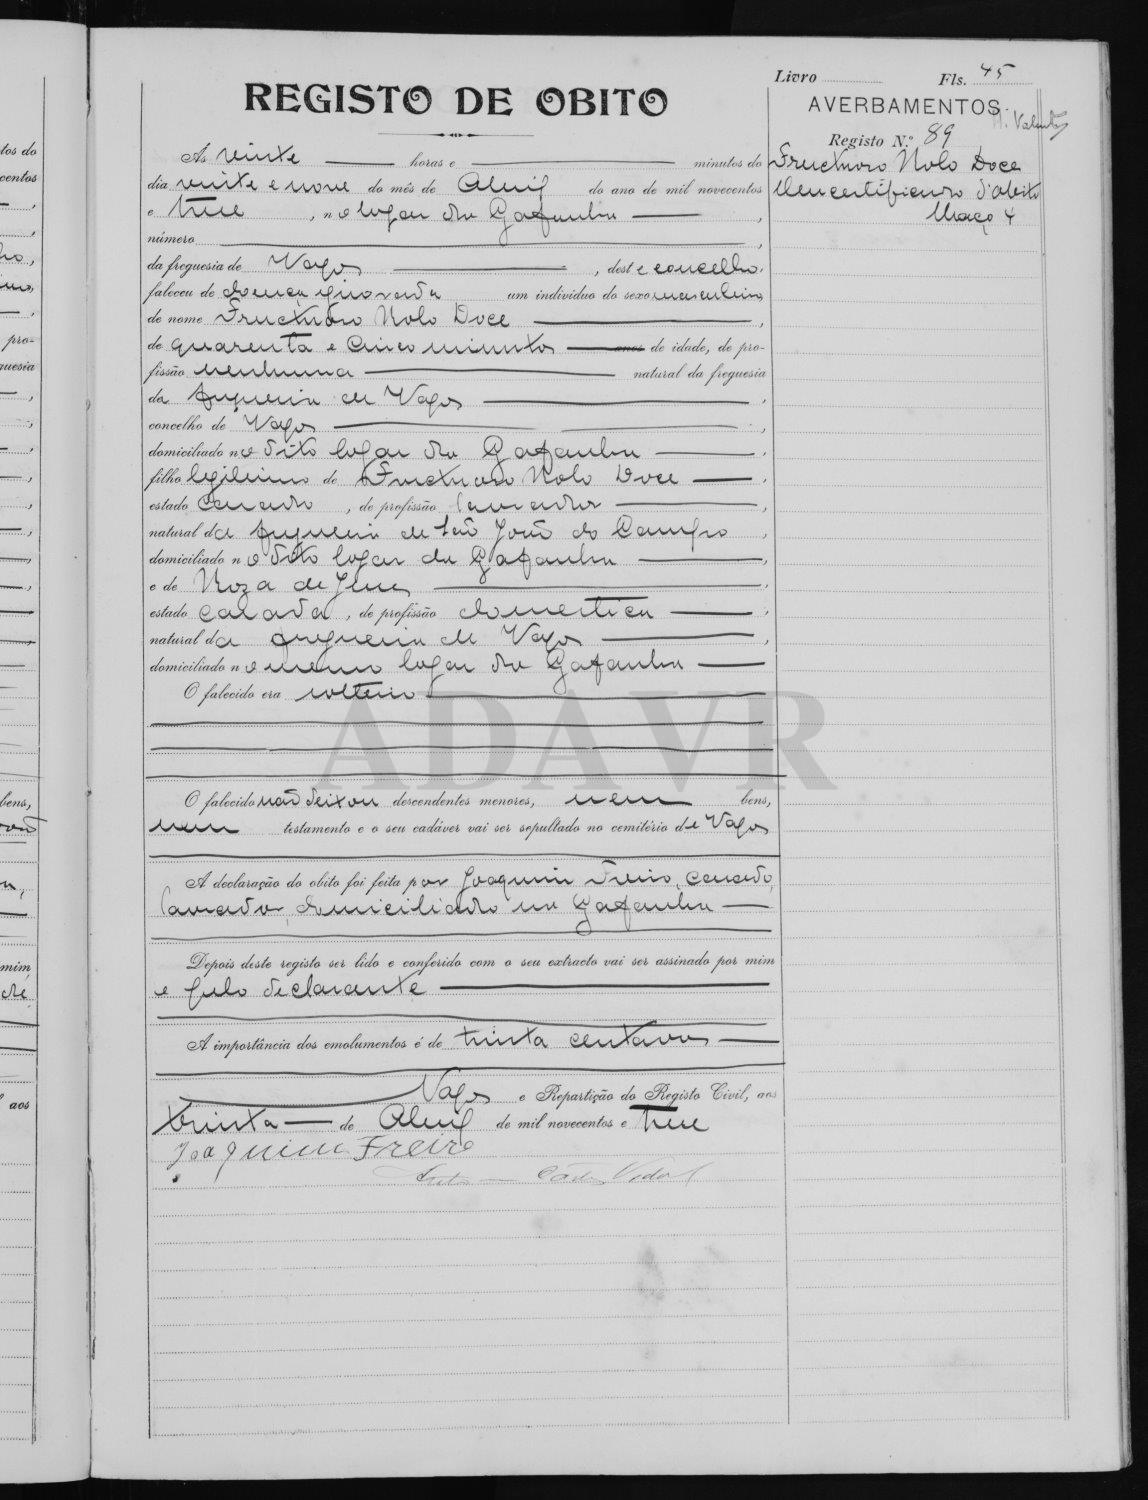 Livro Fls. 45
REGISTO DE OBITO
AVERBAMENTOS
Registo N.º 89
Ás vinte horas e minutos do
dia vinte e nove do mês de Abril do ano de mil novecentos
e treze, no logar da Gafanha,
número,
da freguesia de Vagos, deste concelho,
faleceu de doença ignorada um individuo do sexo masculino
de nome Fructuoso Nolo Doce,
de quarenta e cinco minutos anos de idade, de pro-
fissão nenhuma natural da freguesia
da freguesia de Vagos,
concelho de Vagos,
domiciliado no dito logar da Gafanha,
filho legitimo de Fructuoso Nolo Doce,
estado casado, de profissão lavrador,
natural da freguesia de São João do Campo,
domiciliado no dito logar da Gafanha,
e de Roza de Jesus,
estado casada, de profissão domestica,
natural da freguesia de Vagos,
domiciliado no mesmo logar da Gafanha
O falecido era solteiro
ADAVR
O falecido não deixou descendentes menores, nem bens,
nem testamento e o seu cadáver vai ser sepultado no cemitério de Vagos
A declaração do obito foi feita por Joaquim Freire, casado,
lavrador, domiciliado na Gafanha
Depois deste registo ser lido e conferido com o seu extracto vai ser assinado por mim
e pelo declarante
A importância dos emolumentos é de trinta centavos
Vagos e Repartição do Registo Civil, aos
trinta de Abril de mil novecentos e treze
Joaquim Freire
Fructuoso Nolo Doce
Março 4